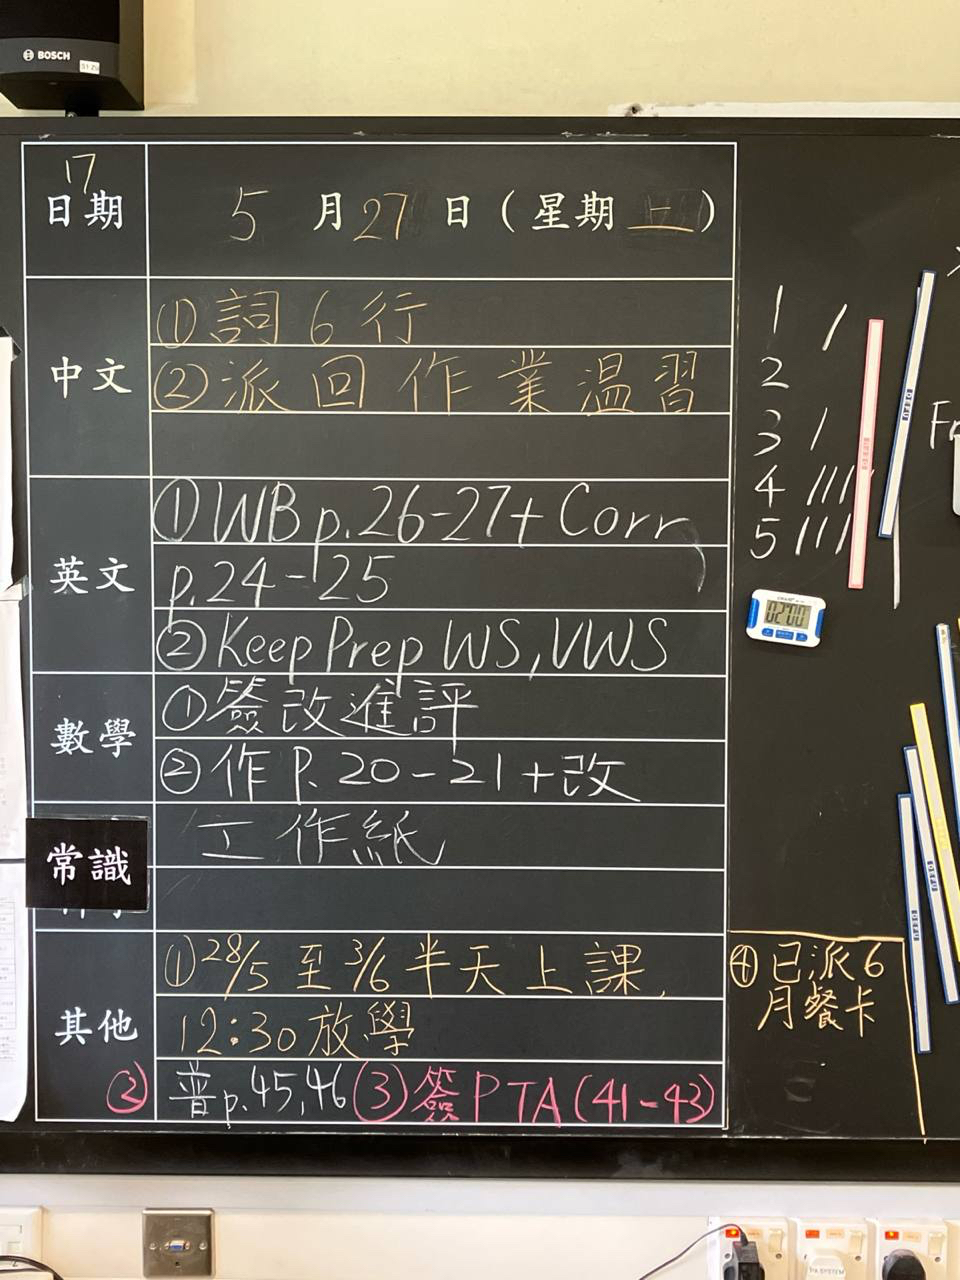 BOSCH
17
日期 5月27日(星期二)
中文
①詞6行
②派回作業温習
英文
①WB p.26-27+Corr
p.24-25
②Keep Prep WS, VWS
數學
①簽改進評
②作P.20-21+改
常識
工作紙
其他
①28/5至3/6半天上課,
12:30放學
②普p.45,46 ③簽PTA(41-43)
④已派6
月餐卡
1 /
2
3 /
4 ///
5 ///
02:00